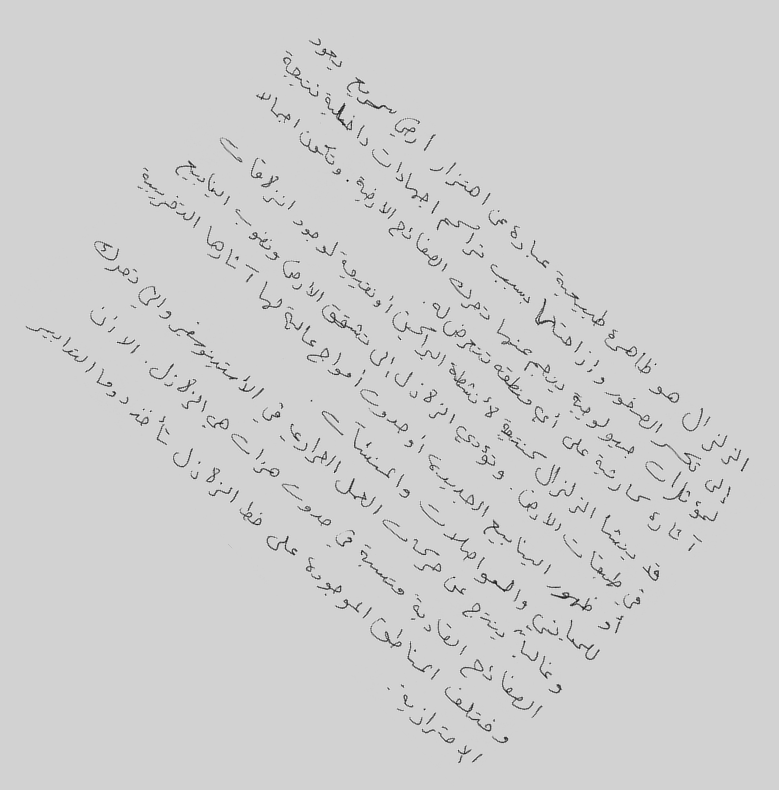 الزلزال هو ظاهرة طبيعية عبارة عن اهتزاز أرضي سريع يعود
إلى تكسر الصخور وإزاحتها بسبب تراكم اجهادات داخلية نتيجة
لمؤثرات جيولوجية ينجم عنها تحرك الصفائح الارضية. وتكون اجمالا
آثاره كارثية على أي منطقة تتعرض له.
قد ينشأ الزلزال كنتيجة لأنشطة البراكين أو نتيجة لوجود انزلاقات
في طبقات الارض. وتؤدي الزلازل الى تشقق الأرض ونضوب الينابيع
أو ظهور الينابيع الجديدة أو حدوث أمواج عالية لها آثارها التخريبية
للمباني والمواصلات والمنشآت.
وغالبا ينتج عن حركات الحمل الحراري في الأستينوسفير والتي تحرك
الصفائح القارية متسببة في حدوث هزات هي الزلازل. الا أن
ومختلف المناطق الموجودة على خط الزلازل تأخذ دوما التدابير
الاحترازية.